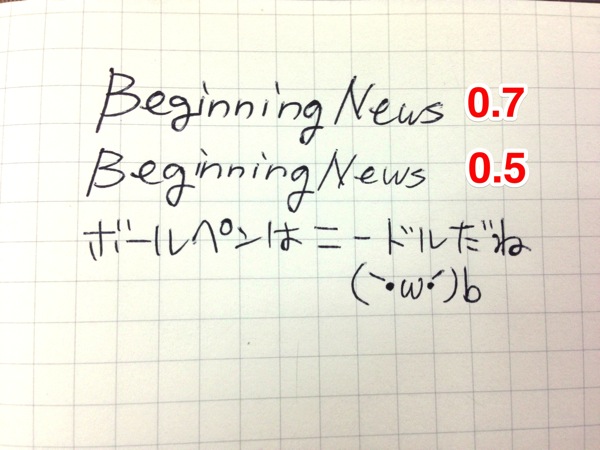 Beginning News 0.7
Beginning News 0.5
ボールペンはニードルだね
(`•ω•´)b